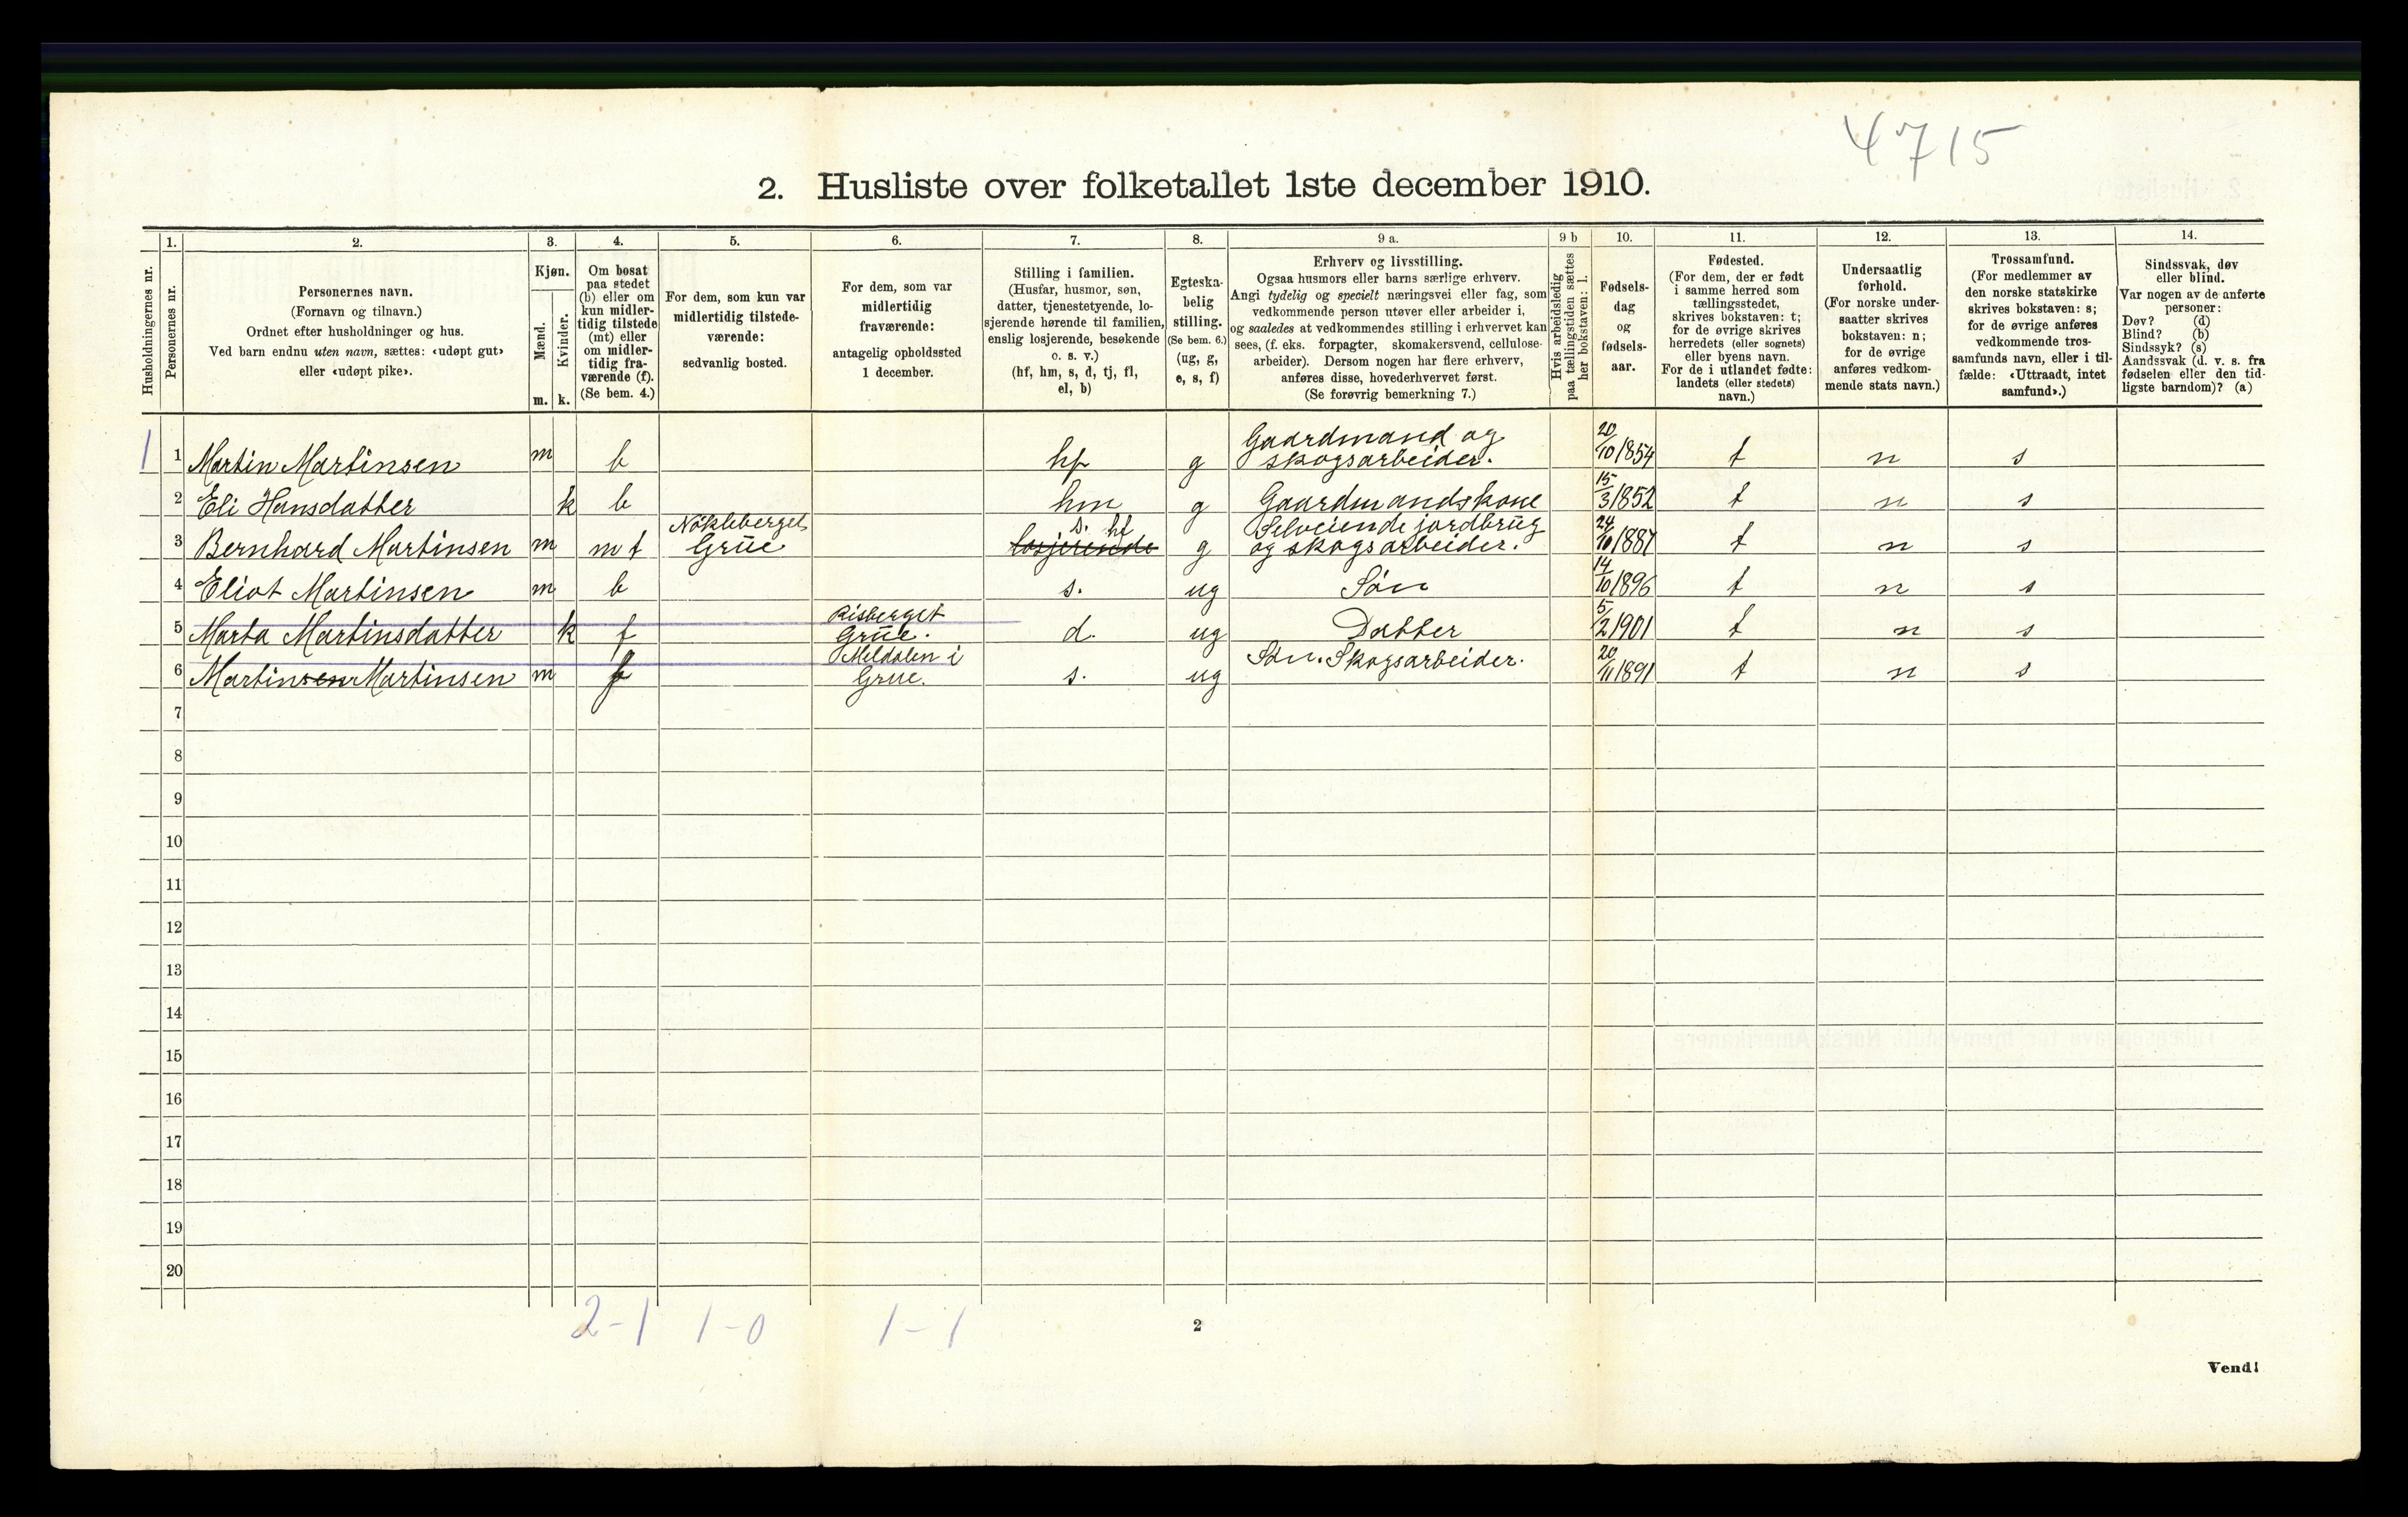 4715
2. Husliste over folketallet 1ste december 1910.
Husholdningernes nr.
1.
Personernes nr.
2.
Personernes navn.
(Fornavn og tilnavn.)
Ordnet efter husholdninger og hus.
Ved barn endnu uten navn, sættes: «udøpt gut»
eller «udøpt pike».
3.
Kjøn.
Mænd.
Kvinder.
m. k.
4.
Om bosat
paa stedet
(b) eller om
kun midler-
tidig tilstede
(mt) eller
om midler-
tidig fra-
værende (f).
(Se bem. 4.)
5.
For dem, som kun var
midlertidig tilstede-
værende:
sedvanlig bosted.
6.
For dem, som var
midlertidig
fraværende:
antagelig opholdssted
1 december.
7.
Stilling i familien.
(Husfar, husmor, søn,
datter, tjenestetyende, lo-
sjerende hørende til familien,
enslig losjerende, besøkende
o. s. v.)
(hf, hm, s, d, tj, fl,
el, b)
8.
Egteska-
belig
stilling.
(Se bem. 6.)
(ug, g,
e, s, f)
9 a.
Erhverv og livsstilling.
Ogsaa husmors eller barns særlige erhverv.
Angi tydelig og specielt næringsvei eller fag, som
vedkommende person utøver eller arbeider i,
og saaledes at vedkommendes stilling i erhvervet kan
sees, (f. eks. forpagter, skomakersvend, cellulose-
arbeider). Dersom nogen har flere erhverv,
anføres disse, hovederhvervet først.
(Se forøvrig bemerkning 7.)
9 b
Hvis arbeidsledig
paa tællingstiden sættes
her bokstaven: l.
10.
Fødsels-
dag
og
fødsels-
aar.
11.
Fødested.
(For dem, der er født
i samme herred som
tællingsstedet,
skrives bokstaven: t;
for de øvrige skrives
herredets (eller sognets)
eller byens navn.
For de i utlandet fødte:
landets (eller stedets)
navn.)
12.
Undersaatlig
forhold.
(For norske under-
saatter skrives
bokstaven: n;
for de øvrige
anføres vedkom-
mende stats navn.)
13.
Trossamfund.
(For medlemmer av
den norske statskirke
skrives bokstaven: s;
for de øvrige anføres
vedkommende tros-
samfunds navn, eller i til-
fælde: «Uttraadt, intet
samfund».)
14.
Sindssvak, døv
eller blind.
Var nogen av de anførte
personer:
Døv? (d)
Blind? (b)
Sindssyk? (s)
Aandssvak (d. v. s. fra
fødselen eller den tid-
ligste barndom)? (a)
1 1 Martin Martinsen m b hf g Gaardmand og skogsarbeider. 20/10 1854 t n s
2 Eli Hansdatter k b hm g Gaardmandskone 15/3 1852 t n s
3 Bernhard Martinsen m mt Nökleberget Grüe s. hf losjerende g Selveiende jordbrüg og skogsarbeider. 24/10 1887 t n s
4 Eliot Martinsen m b s. ug Søn 14/10 1896 t n s
5 Marta Martinsdatter k f Risberget Grüe. d. ug Datter 5/2 1901 t n s
6 Martinsen Martinsen m f Meldalen i Grue. s. ug Søn. Skogsarbeider. 20/11 1891 t n s
7
8
9
10
11
12
13
14
15
16
17
18
19
20
2-1 1-0 1-1
2
Vend!